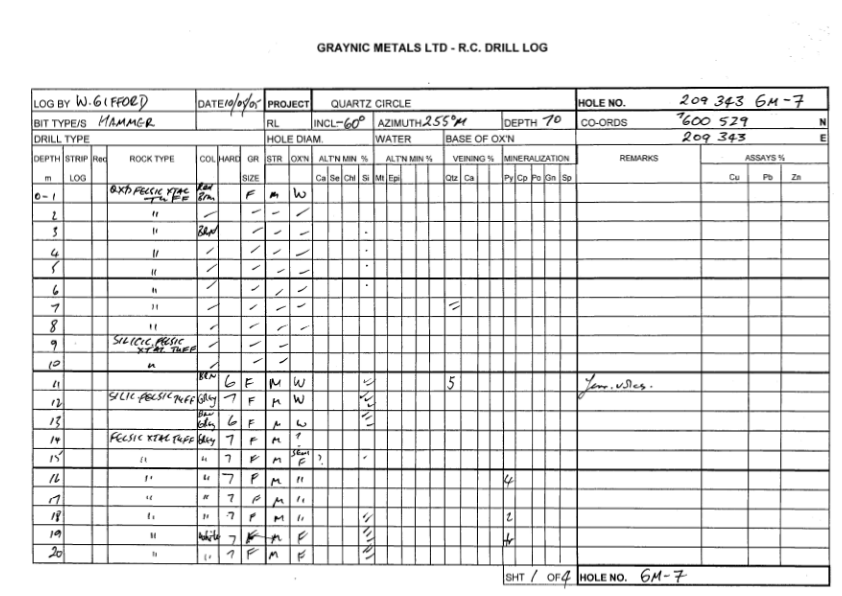 GRAYNIC METALS LTD - R.C. DRILL LOG
LOG BY W.GIFFORD DATE 10/05 PROJECT QUARTZ CIRCLE HOLE NO. 209 343 GM-7
BIT TYPE/S HAMMER RL INCL -60° AZIMUTH 255°M DEPTH 70 CO-ORDS 7600 529 N
DRILL TYPE HOLE DIAM. WATER BASE OF OX'N 209 343 E
DEPTH STRIP Rec ROCK TYPE COL HARD GR STR OX'N ALT'N MIN % ALT'N MIN % VEINING % MINERALIZATION REMARKS ASSAYS %
m LOG SIZE Ca Se Chl Si Mt Epi Qtz Ca Py Cp Po Gn Sp Cu Pb Zn
0-1 FELSIC XTAL TUFF Red Brn F M W
2 "
3 " BRN
4 "
5 "
6 "
7 "
8 "
9 SILICIC, FELSIC XTAL TUFF
10 "
11 BRN 6 F M W 5
12 SILIC FELSIC TUFF Grey 7 F M W
13 Brn Grey 6 F M W
14 FELSIC XTAL TUFF Grey 7 F M ?
15 " " 7 F M Semi F ?
16 " " 7 F M " 4
17 " " 7 F M "
18 " " 7 F M " 2
19 " White 7 F M F tr
20 " " 7 F M F
SHT 1 OF 4 HOLE NO. GM-7